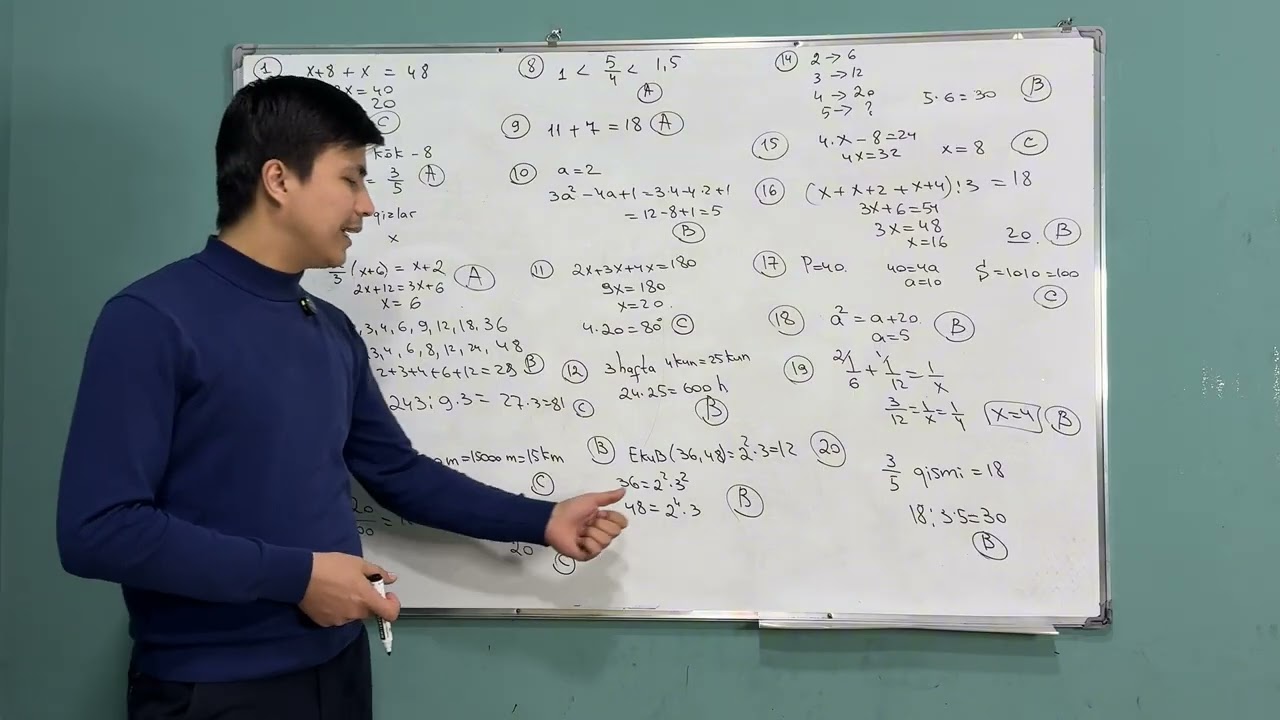 ① x+8+x = 48
x=40
20
C
kōk - 8
= 3/5 A
qizlar
x
/3 (x+6) = x+2
2x+12 = 3x+6 A
x= 6
3, 4, 6, 9, 12, 18, 36
3, 4, 6, 8, 12, 24, 48
2+3+4+6+12=28 B
243:9·3= 27·3=81 C
m=15000m=15km
C
20
C
⑧ 1 < 5/4 < 1,5
A
⑨ 11+7=18 A
⑩ a=2
3a²-4a+1=3·4-4·2+1
= 12-8+1=5
B
⑪ 2x+3x+4x=180
9x=180
x=20.
4·20=80° C
⑫ 3 hafta 4kun=25kun
24·25=600h
B
B EKUB(36,48)=2²·3=12
36=2²·3²
48=2⁴·3 B
⑭ 2→6
3→12
4→20
5→?
5·6=30 B
⑮ 4·x-8=24
4x=32 x=8 C
⑯ (x+x+2+x+4):3 =18
3x+6=54
3x=48
x=16 20. B
⑰ P=40. 40=4a S=1010=100
a=10
C
⑱ a²=a+20
a=5 B
⑲ 1/6+1/12=1/x
3/12=1/x=1/4 x=4 B
⑳ 3/5 qismi =18
18:3·5=30
B